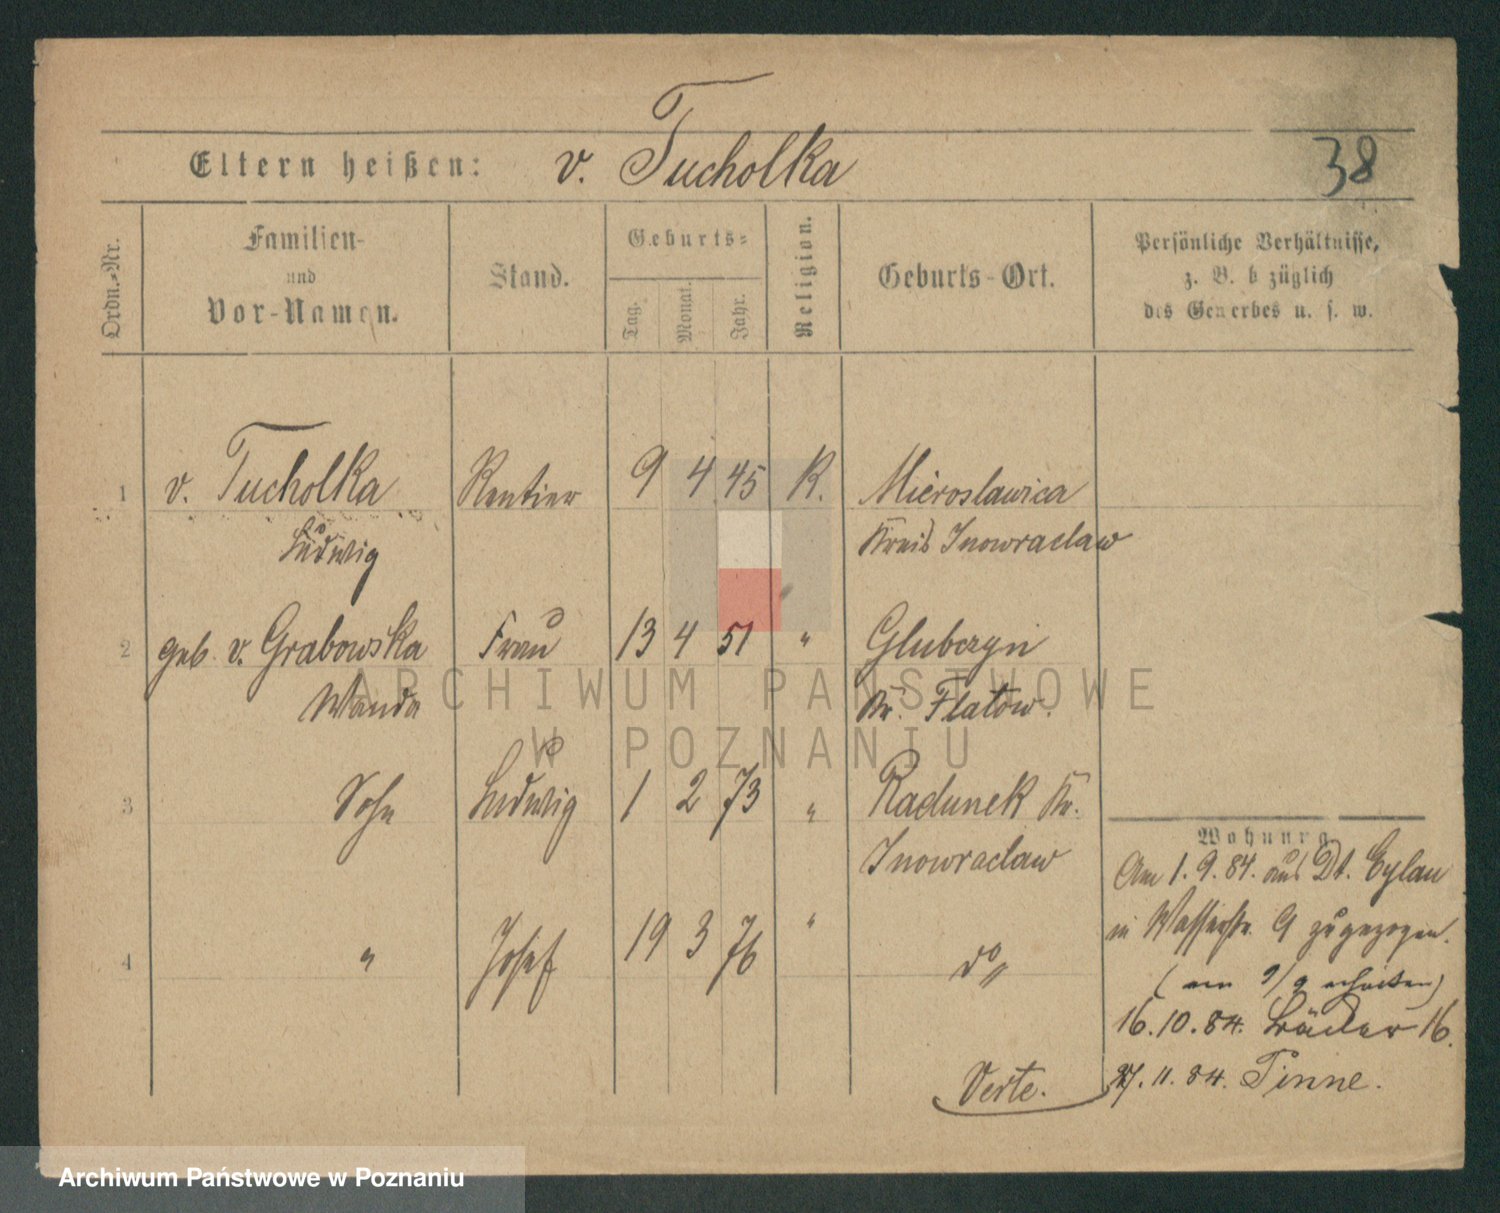 Eltern heißen: v. Tucholka 38
Ordn.-Nr.
Familien-
und
Vor-Namen.
Stand.
Geburts-
Tag.
Monat.
Jahr.
Religion.
Geburts-Ort.
Persönliche Verhältnisse,
z. B. bezüglich
des Gewerbes u. s. w.
1 v. Tucholka Rentier 9 4 45 K. Mieroslawica
Ludwig Kreis Inowraclaw
2 geb. v. Grabowska Frau 13 4 51 " Glubczyn
Wanda Kr. Flatow.
3 Sohn Ludwig 1 2 73 " Radunek Kr.
Inowraclaw
4 " Josef 19 3 76 " do
Verte.
Wohnung
Am 1. 9. 84. aus Dt. Eylau
in Wasserstr. 9 zugezogen.
(am 9/9 erhalten)
16. 10. 84. Bäcker 16.
27. 11. 84. Pinne.
ARCHIWUM PAŃSTWOWE
W POZNANIU
Archiwum Państwowe w Poznaniu